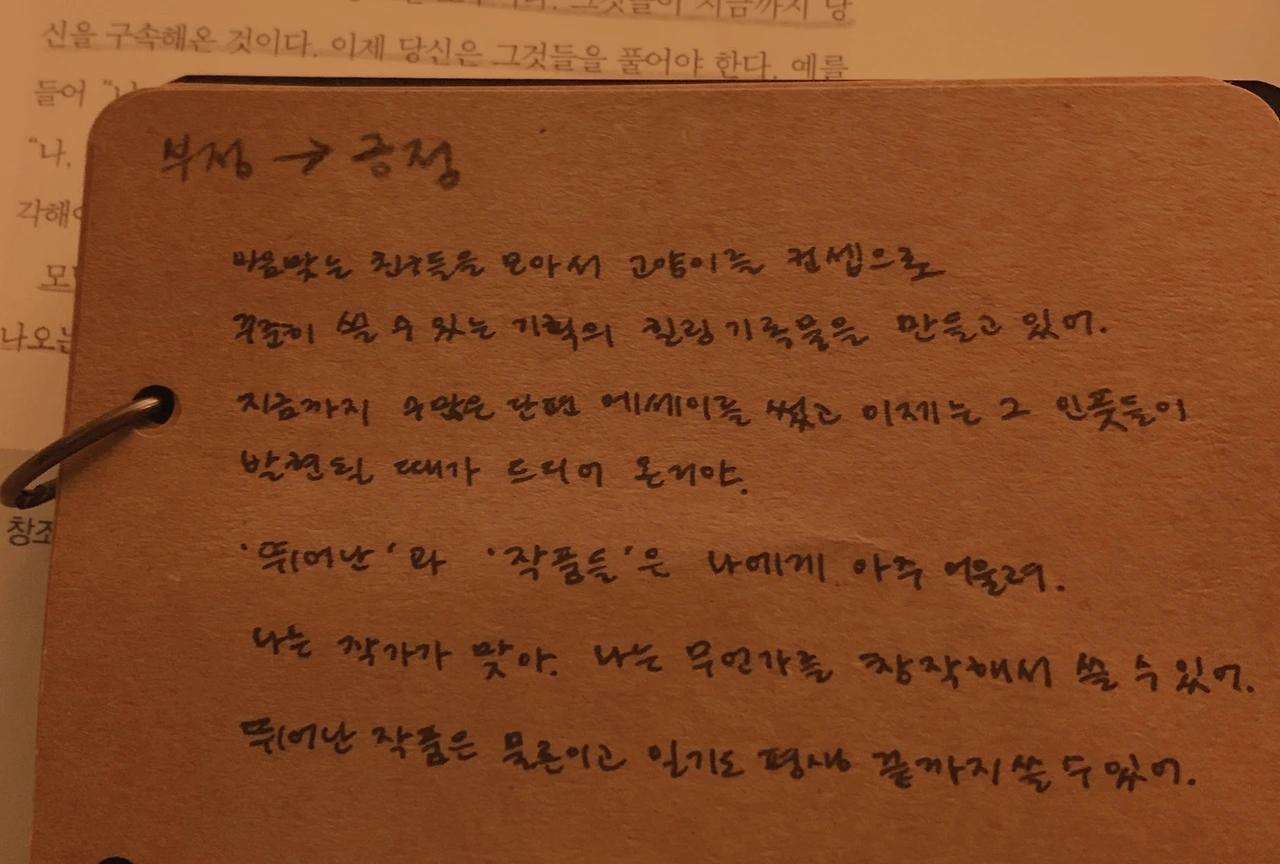 지금까지 당
신을 구속해온 것이다. 이제 당신은 그것들을 풀어야 한다. 예를
들어
"나.
각해
나오는
창조
부정 → 긍정
마음맞는 친구들을 모아서 고양이를 컨셉으로
꾸준히 쓸 수 있는 기획의 힐링 기록물을 만들고 있어.
지금까지 수많은 단편 에세이를 썼고 이제는 그 인풋들이
발현될 때가 드디어 온거야.
'뛰어난'과 '작품들'은 나에게 아주 어울려.
나는 작가가 맞아. 나는 무언가를 창작해서 쓸 수 있어.
뛰어난 작품은 물론이고 일기도 평생 끝까지 쓸 수 있어.